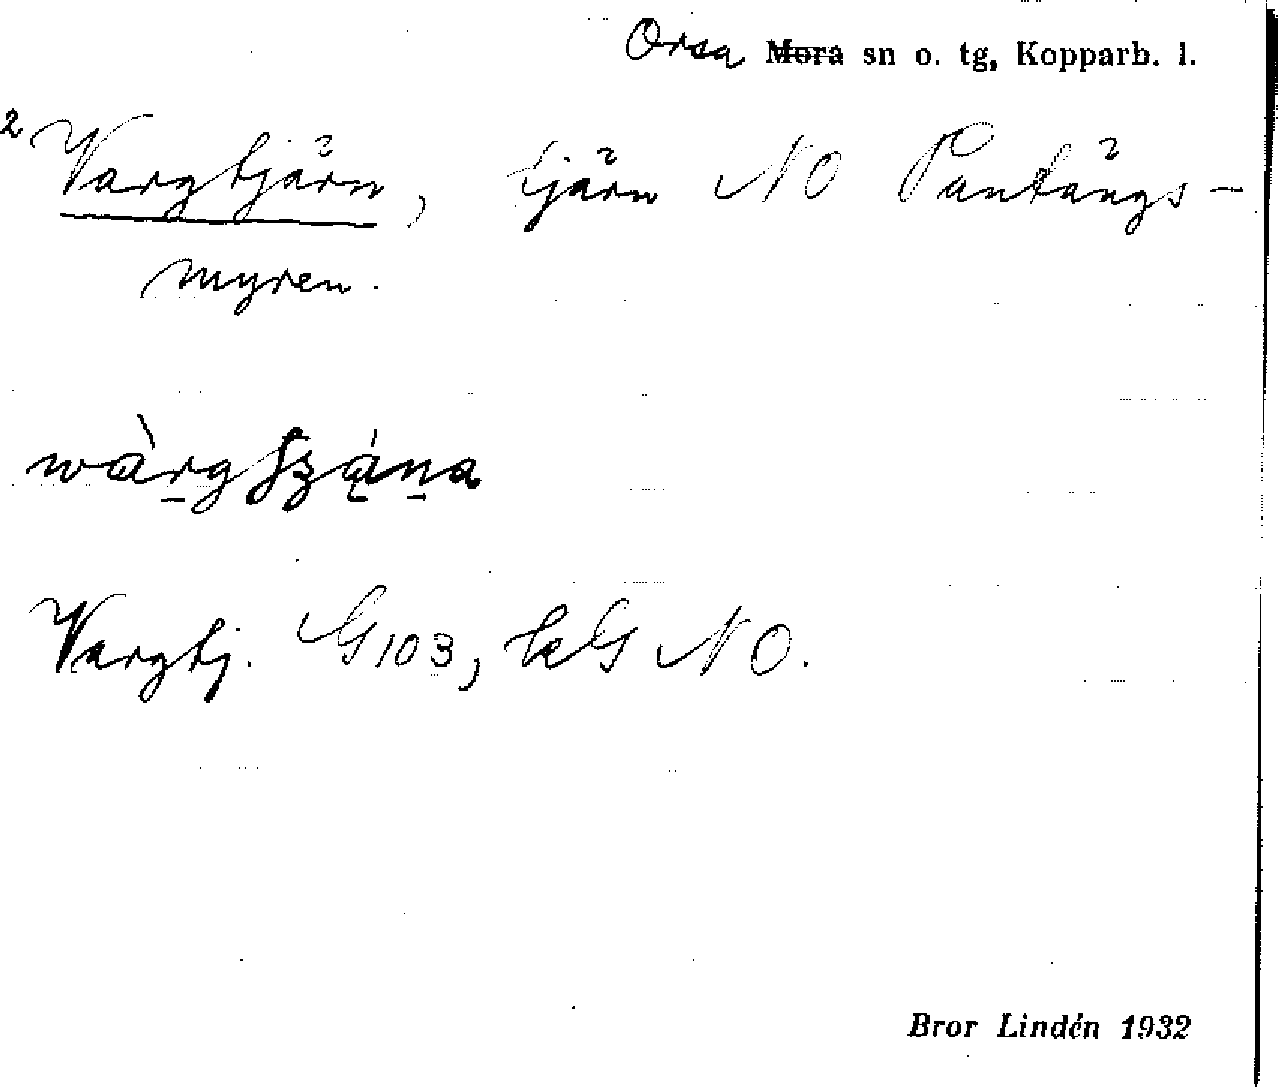 Orsa Mora sn o. tg, Kopparb. l.
2 Vargtjärn, tjärn NO Pantängs-
myren.
Vargtj. G103, NO.
Bror Lindén 1932